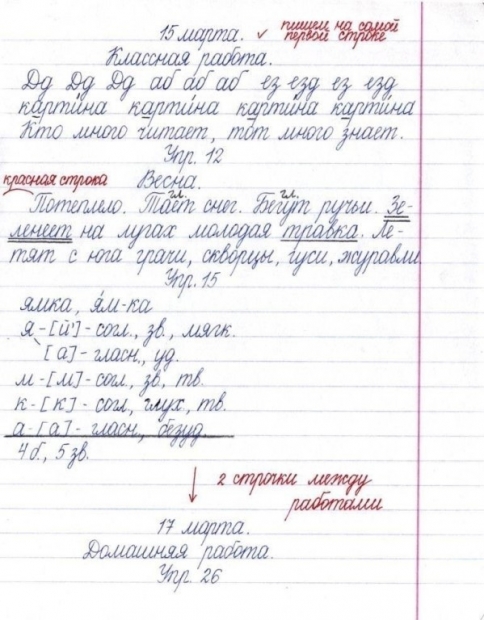 15 марта. ✓ пишем на самой первой строке
Классная работа.
Дд Дд Дд аб аб аб ез езд ез езд
картина картина картина картина
Кто много читает, тот много знает.
Упр. 12
красная строка Весна.
гл. гл.
Потеплело. Тает снег. Бегут ручьи. Зе-
ленеет на лугах молодая травка. Ле-
тят с юга грачи, скворцы, гуси, журавли.
Упр. 15
ямка, я́м-ка
я - [й'] - согл., зв., мягк.
[а] - гласн., уд.
м - [м] - согл., зв., тв.
к - [к] - согл., глух., тв.
а - [а] - гласн., безуд.
4 б., 5 зв.
2 строчки между
работами
17 марта.
Домашняя работа.
Упр. 26